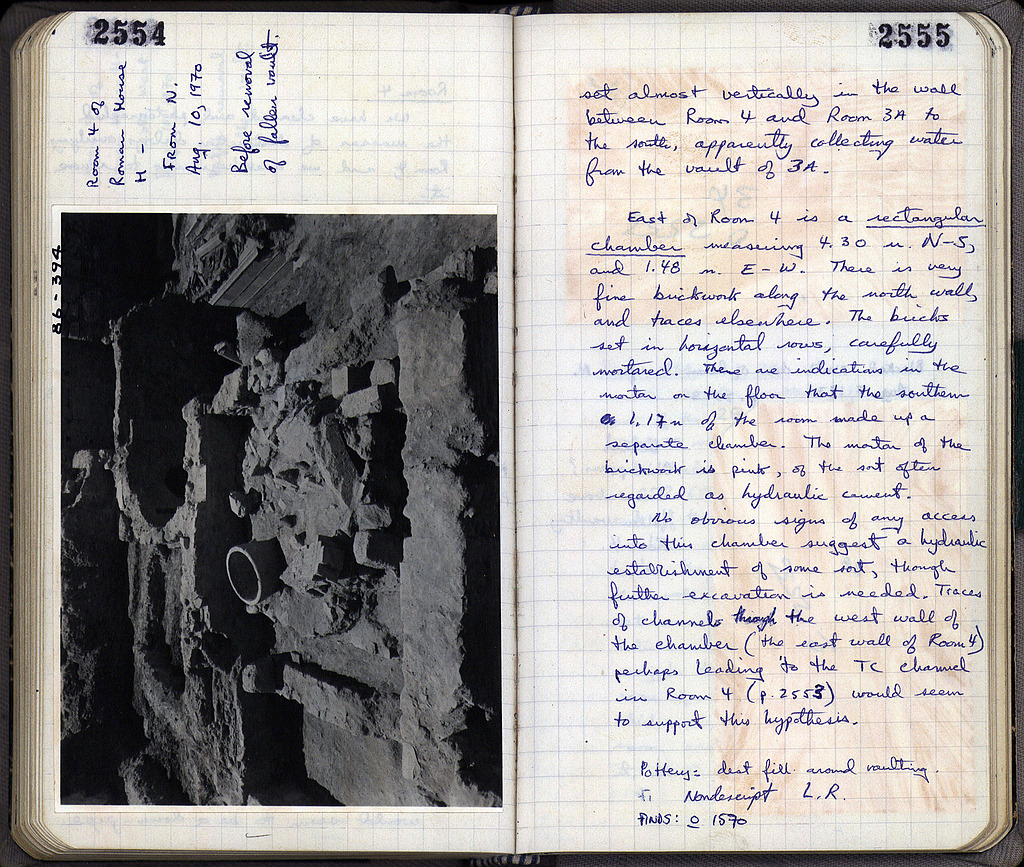 2554
Room 4 of
Roman House
H -
From N.
Aug. 10, 1970
Before removal
of fallen vault.
86-394
2555
set almost vertically in the wall
between Room 4 and Room 3A to
the south, apparently collecting water
from the vault of 3A.
East of Room 4 is a rectangular
chamber measuring 4.30 m. N-S,
and 1.48 m. E-W. There is very
fine brickwork along the north wall,
and traces elsewhere. The bricks
set in horizontal rows, carefully
mortared. There are indications in the
mortar on the floor that the southern
1.17 m of the room made up a
separate chamber. The mortar of the
brickwork is pink, of the sort often
regarded as hydraulic cement.
No obvious signs of any access
into this chamber suggest a hydraulic
establishment of some sort, though
further excavation is needed. Traces
of channels through the west wall of
the chamber (the east wall of Room 4)
perhaps leading to the TC channel
in Room 4 (p. 2553) would seem
to support this hypothesis.
Pottery: dest fill around vaulting.
Nondescript L.R.
FINDS: O 1570